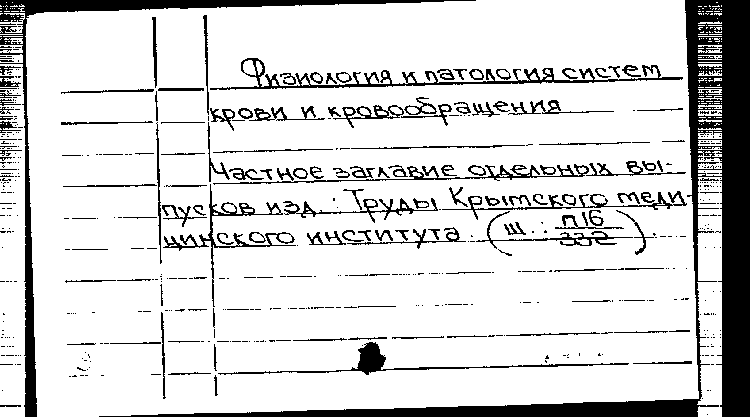 Физиология и патология систем
крови и кровообращения
Частное заглавие отдельных вы-
пусков изд.: Труды Крымского меди-
цинского института. (Ш.: П16/332).